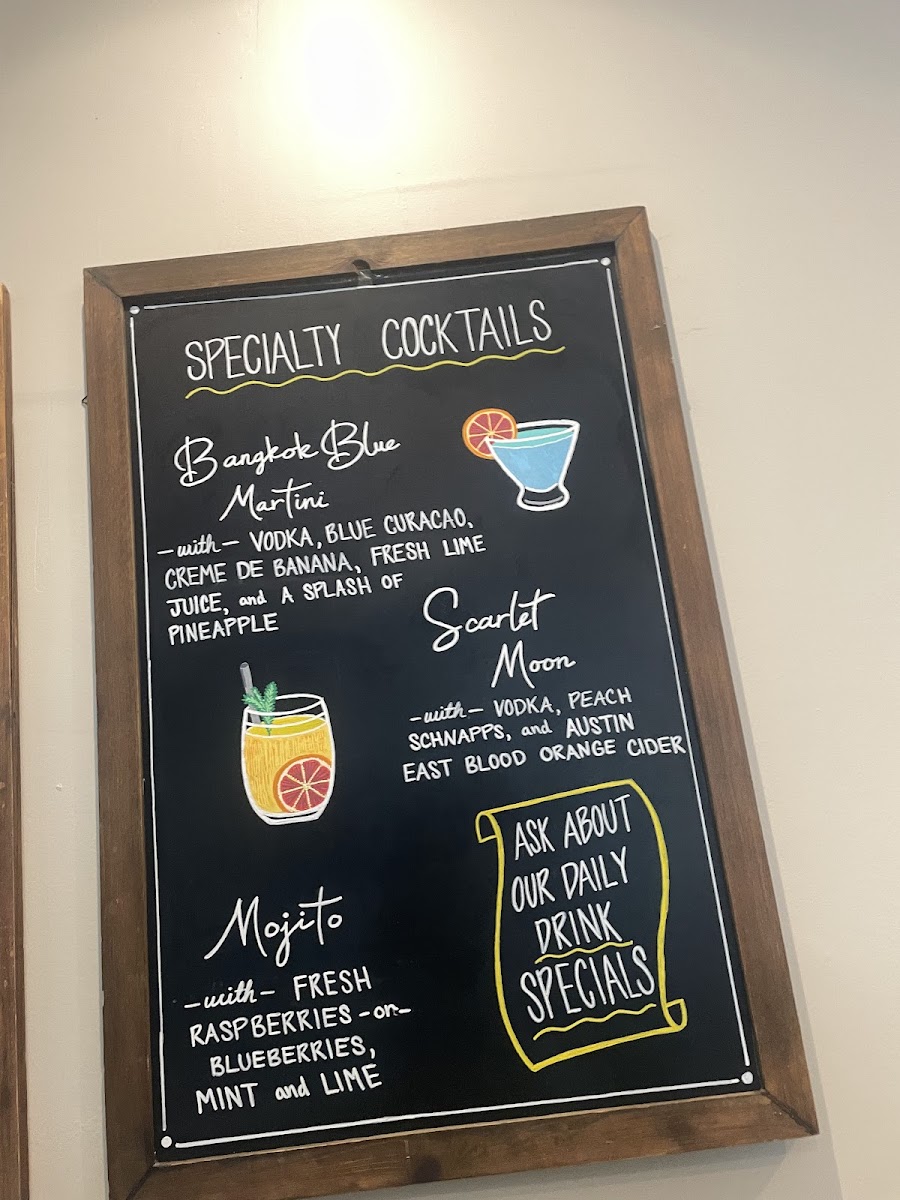 SPECIALTY COCKTAILS
Bangkok Blue
Martini
-with- VODKA, BLUE CURACAO,
CREME DE BANANA, FRESH LIME
JUICE, and A SPLASH OF
PINEAPPLE
Scarlet
Moon
-with- VODKA, PEACH
SCHNAPPS, and AUSTIN
EAST BLOOD ORANGE CIDER
Mojito
-with- FRESH
RASPBERRIES -or-
BLUEBERRIES,
MINT and LIME
ASK ABOUT
OUR DAILY
DRINK
SPECIALS